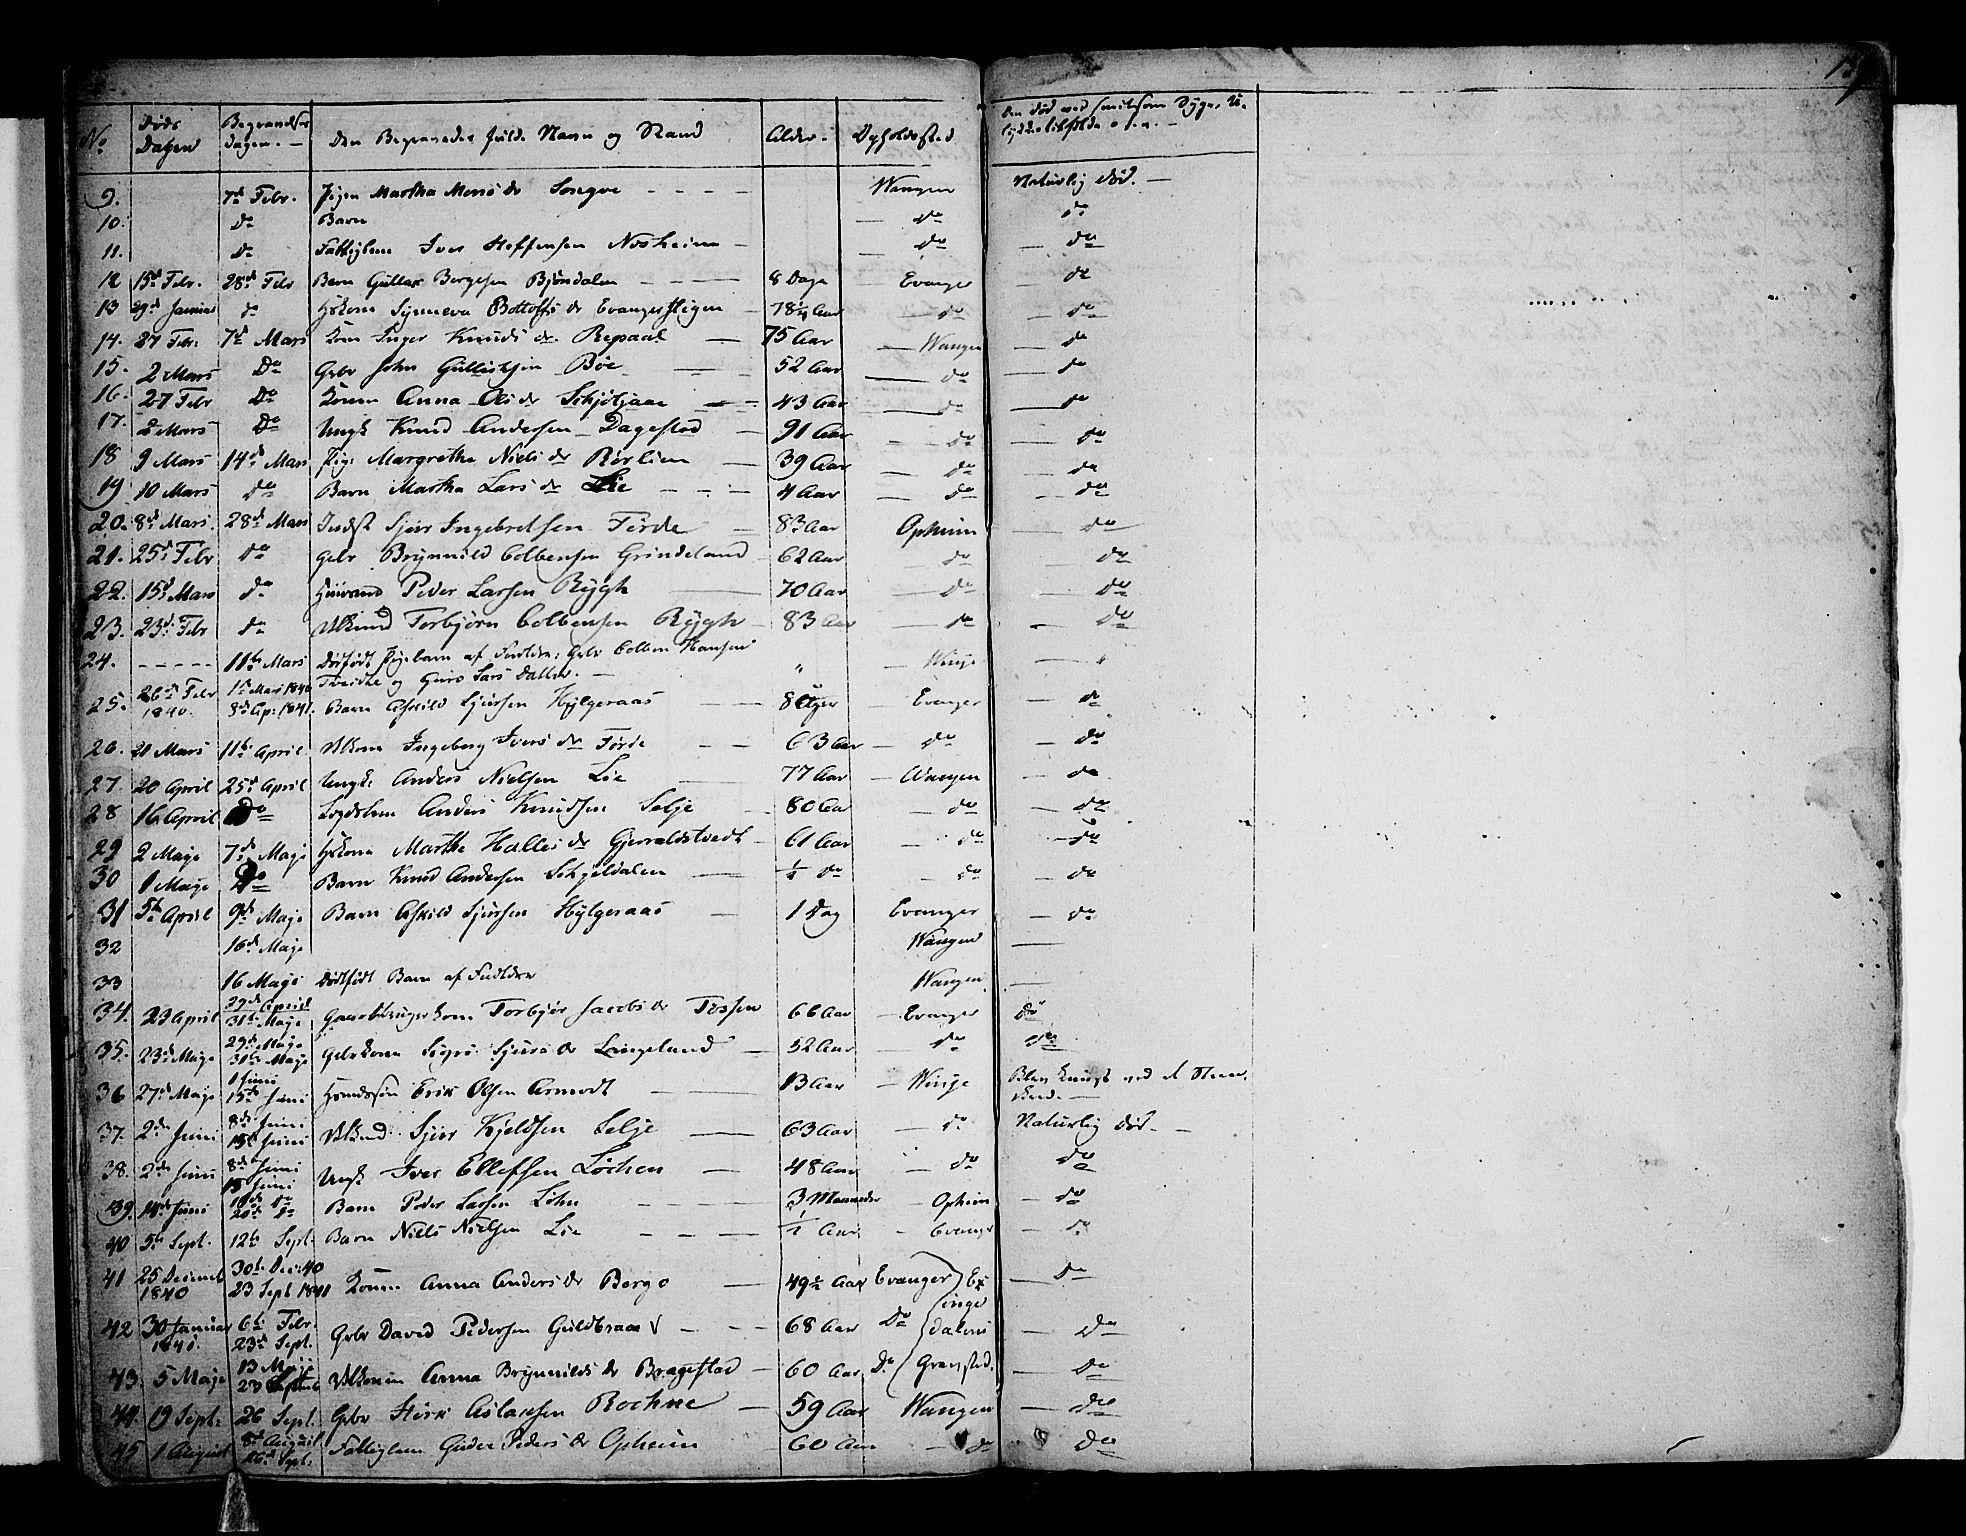 No Døds Dagen Begravelses Dagen. Den Begravedes fulde Navn og Stand Alder. Opholdssted Den død ved smitsom Syge, U-
lykkestilfælde o.s.v.
9. 7de Febr. Pigen Martha Monsdr Songve Wangen Naturlig død.
10. do Barn do do
11. do Fattiglem Iver Steffensen Nosheim do do
12 15de Febr. 28de Febr Barn Gullak Bergesen Bjöndalen 8 Dage Evanger do
13 29de Januar do Hskone Synneva Bottolfsdr Evangerstigen 78 1/4 Aar do do
14. 27 Febr. 7de Mars Kone Inger Knudsdr Repaal 75 Aar Wangen do
15. 2 Mars Do Gbr John Gulleiksen Böe 52 Aar do do
16. 27 Febr Do Konen Anna Olsdr 43 Aar do do
17. 2 Mars Do Ungk Knud Andersen Dagestad 91 Aar do do
18 9 Mars 14de Mars Pige Margretha Nielsdr Rörlien 39 Aar do do
19 10 Mars Do Barn Martha Larsdr Lie 4 Aar do do
20. 8de Mars. 28de Mars Indst Sjur Ingebretsen Törde 83 Aar Opheim do
21. 25de Febr do Gbr Brynnild Colbensen Grindeland 62 Aar do do
22. 15de Mars do Huusmd Peder Larsen Rÿgh 70 Aar do do
23. 23de Febr do Vlkmd Torbjörn Colbensen Rÿgh 83 Aar do do
24. 11te Mars Dödfödt Pigebarn af Forældre: Gbr Colben Hansen Winje
Tveithe og Guro Larsdatter.
25. 26de Febr 1840. 1te Mars 1840 8de Apr. 1841. Barn Askild Sjursen Hylgeraas 8 Uger Evanger do
26. 21 Mars 11te April Vlkone Ingeborg Iversdr Törde 63 Aar do do
27. 20 April 25de April Ungk: Anders Nielsen Lie 77 Aar Wangen do
28 16 April Do Lægdslem Anders Knudsen Selje 80 Aar do do
29 2 Maje 7de Maje Hskone Martha Hallesdr Gjerraldstvedt 61 Aar do do
30 1 Maje Do Barn Knud Andersen Schjeldalen 1/4 do do do
31 5te April 9de Maje Barn Askild Sjursen Hÿlgeraas 1 Dag Evanger do
32 16de Maje Wangen
33 16 Maje Dödfödt Barn af Forældre Wangen
34. 23 April 29de April 31te Maje Gaardbrugerkone Torbjör Jacobsdr Tössen 66 Aar Evanger do
35. 23de Maje 29de Maje 31te Maje Gbrkone Sigri Sjursdr Langeland 52 Aar do do
36 27de Maje 1 Juni 15de Juni Hsmdssön Erik Olsen Armodt 13 Aar Winje Blev knust ved et Steen-
37. 2de Juni 8de Juni 15de Juni Vlkmd Sjur Kjeldsen Selje 63 Aar do Naturlig död.
38. 2de Juni 8de Juni 15 Juni Ungk Iver Ellefsen Löchen 48 Aar do do
39. 14de Juni 19de do 20de do Barn Peder Larsen Löhn 3 Maaneder Opheim do
40 5te Sept. 12te Sept. Barn Niels Nielsen Lie 1/4 Aar Evanger do
41 25 Decemb 1840 30te Dec: 40 23 Sept 1841 Konen Anna Andersdr Berge 49 1/2 Aar Evanger Ex- Do
inge
42 30 Januar 1841. 6te Febr. 23de Sept. Gbr David Pedersen Guldbraa 68 Aar Do dalens Do
43. 5 Maje 13 Maje 23 Septemb Vlkonen Anna Brynnildsdr Bragestad 60 Aar Do Gravsted. Do
44. 19 Sept: 26 Sept. Gbr Störk Aslaksen Rockne 59 Aar Wangen Do
45 1 August 8de August 26de Sept. Fattiglem Guder Pedersdr Opheim 60 Aar do Do